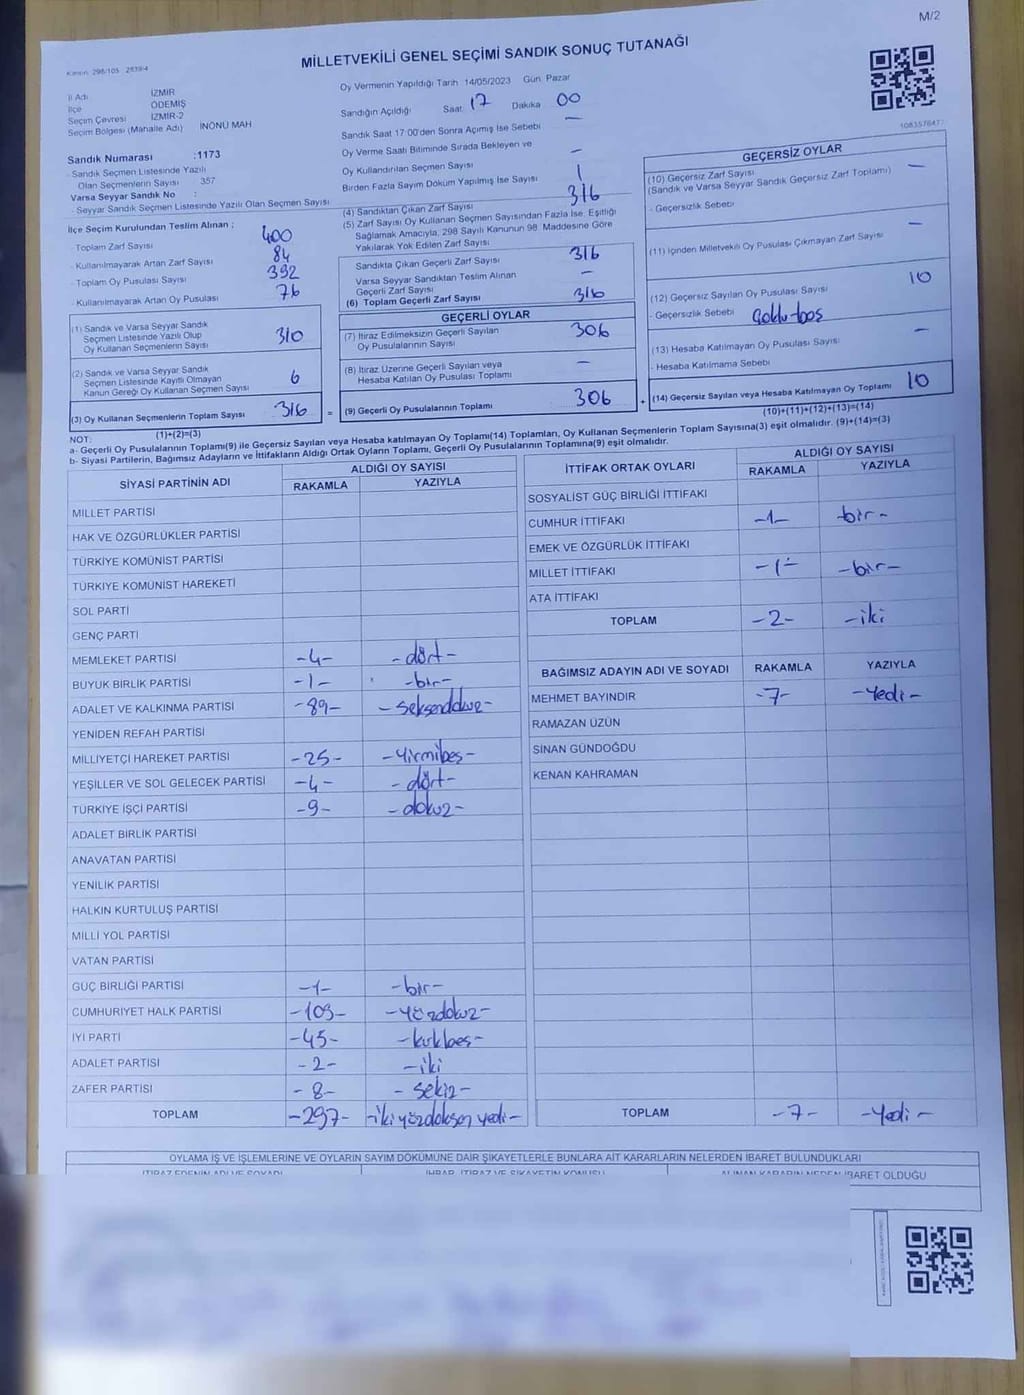 M/2
MİLLETVEKİLİ GENEL SEÇİMİ SANDIK SONUÇ TUTANAĞI
Kanun: 298/105 2839/4
İl Adı İZMİR
İlçe ÖDEMİŞ
Seçim Çevresi İZMİR-2
Seçim Bölgesi (Mahalle Adı) İNÖNÜ MAH
Sandık Numarası :1173
- Sandık Seçmen Listesinde Yazılı
Olan Seçmenlerin Sayısı 357
Varsa Seyyar Sandık No :
- Seyyar Sandık Seçmen Listesinde Yazılı Olan Seçmen Sayısı
İlçe Seçim Kurulundan Teslim Alınan ;
- Toplam Zarf Sayısı 400
- Kullanılmayarak Artan Zarf Sayısı 84
- Toplam Oy Pusulası Sayısı 392
- Kullanılmayarak Artan Oy Pusulası 76
(1) Sandık ve Varsa Seyyar Sandık
Seçmen Listesinde Yazılı Olup
Oy Kullanan Seçmenlerin Sayısı 310
(2) Sandık ve Varsa Seyyar Sandık
Seçmen Listesinde Kayıtlı Olmayan
Kanun Gereği Oy Kullanan Seçmen Sayısı 6
(3) Oy Kullanan Seçmenlerin Toplam Sayısı 316 =
(1)+(2)=(3)
Oy Vermenin Yapıldığı Tarih 14/05/2023 Gün Pazar
Sandığın Açıldığı Saat 17 Dakika 00
Sandık Saat 17:00'den Sonra Açımış İse Sebebi —
Oy Verme Saati Bitiminde Sırada Bekleyen ve
Oy Kullandırılan Seçmen Sayısı —
Birden Fazla Sayım Döküm Yapılmış İse Sayısı 1
(4) Sandıktan Çıkan Zarf Sayısı 316
(5) Zarf Sayısı Oy Kullanan Seçmen Sayısından Fazla İse, Eşitliği
Sağlamak Amacıyla, 298 Sayılı Kanunun 98. Maddesine Göre
Yakılarak Yok Edilen Zarf Sayısı
Sandıkta Çıkan Geçerli Zarf Sayısı 316
Varsa Seyyar Sandıktan Teslim Alınan
Geçerli Zarf Sayısı —
(6) Toplam Geçerli Zarf Sayısı 316
GEÇERLİ OYLAR
(7) İtiraz Edilmeksizin Geçerli Sayılan
Oy Pusulalarının Sayısı 306
(8) İtiraz Üzerine Geçerli Sayılan veya
Hesaba Katılan Oy Pusulası Toplamı —
(9) Geçerli Oy Pusulalarının Toplamı 306 +
1083576477
GEÇERSİZ OYLAR
(10) Geçersiz Zarf Sayısı —
(Sandık ve Varsa Seyyar Sandık Geçersiz Zarf Toplamı)
- Geçersizlik Sebebi
(11) İçinden Milletvekili Oy Pusulası Çıkmayan Zarf Sayısı —
(12) Geçersiz Sayılan Oy Pusulası Sayısı 10
- Geçersizlik Sebebi Çoklu-boş
(13) Hesaba Katılmayan Oy Pusulası Sayısı —
- Hesaba Katılmama Sebebi
(14) Geçersiz Sayılan veya Hesaba Katılmayan Oy Toplamı 10
(10)+(11)+(12)+(13)=(14)
NOT:
a- Geçerli Oy Pusulalarının Toplamı(9) ile Geçersiz Sayılan veya Hesaba katılmayan Oy Toplamı(14) Toplamları, Oy Kullanan Seçmenlerin Toplam Sayısına(3) eşit olmalıdır. (9)+(14)=(3)
b- Siyasi Partilerin, Bağımsız Adayların ve İttifakların Aldığı Ortak Oyların Toplamı, Geçerli Oy Pusulalarının Toplamına(9) eşit olmalıdır.
SİYASİ PARTİNİN ADI ALDIĞI OY SAYISI
RAKAMLA YAZIYLA
MİLLET PARTİSİ
HAK VE ÖZGÜRLÜKLER PARTİSİ
TÜRKİYE KOMÜNİST PARTİSİ
TÜRKİYE KOMÜNİST HAREKETİ
SOL PARTİ
GENÇ PARTİ
MEMLEKET PARTİSİ -4- -dört-
BÜYÜK BİRLİK PARTİSİ -1- -bir-
ADALET VE KALKINMA PARTİSİ -89- -seksendokuz-
YENİDEN REFAH PARTİSİ
MİLLİYETÇİ HAREKET PARTİSİ -25- -yirmibeş-
YEŞİLLER VE SOL GELECEK PARTİSİ -4- -dört-
TÜRKİYE İŞÇİ PARTİSİ -9- -dokuz-
ADALET BİRLİK PARTİSİ
ANAVATAN PARTİSİ
YENİLİK PARTİSİ
HALKIN KURTULUŞ PARTİSİ
MİLLİ YOL PARTİSİ
VATAN PARTİSİ
GÜÇ BİRLİĞİ PARTİSİ -1- -bir-
CUMHURİYET HALK PARTİSİ -109- -yüzdokuz-
İYİ PARTİ -45- -kırkbeş-
ADALET PARTİSİ -2- -iki
ZAFER PARTİSİ -8- -sekiz-
TOPLAM -297- -ikiyüzdoksan yedi-
İTTİFAK ORTAK OYLARI ALDIĞI OY SAYISI
RAKAMLA YAZIYLA
SOSYALİST GÜÇ BİRLİĞİ İTTİFAKI
CUMHUR İTTİFAKI -1- -bir-
EMEK VE ÖZGÜRLÜK İTTİFAKI
MİLLET İTTİFAKI -1- -bir-
ATA İTTİFAKI
TOPLAM -2- -iki
BAĞIMSIZ ADAYIN ADI VE SOYADI RAKAMLA YAZIYLA
MEHMET BAYINDIR -7- -yedi-
RAMAZAN ÜZÜN
SİNAN GÜNDOĞDU
KENAN KAHRAMAN
TOPLAM -7- -yedi-
OYLAMA İŞ VE İŞLEMLERİNE VE OYLARIN SAYIM DÖKÜMÜNE DAİR ŞİKAYETLERLE BUNLARA AİT KARARLARIN NELERDEN İBARET BULUNDUKLARI
İTİRAZ EDENİN ADI VE SOYADI İHBAR, İTİRAZ VE ŞİKAYETİN KONUSU ALINAN KARARIN NEDEN İBARET OLDUĞU